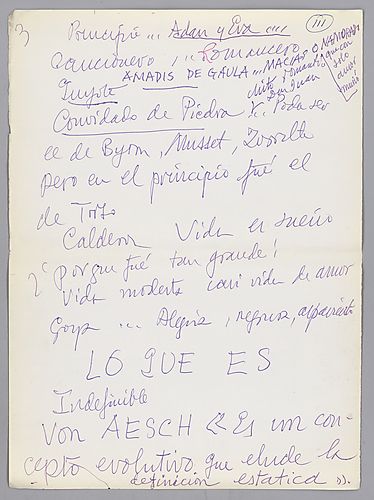 3
III
Principio ... Adan y Eva ....
Cancionero , .. Romancero
AMADIS DE GAULA ... MACIAS O NAMORADO
Quijote
mito romantico que
Don Juan
solo
amor
Convidado de Piedra X. Podia ser
el de Byron, Musset, Zorrilla
pero en el principio fué el
de Tirso
Calderon Vida es sueño
¿Por que fué tan grande?
Vida modesta casi vida de amor
Goya ... Alegria, negrura,
LO QUE ES
Indefinible
Von AESCH « Es un con-
cepto evolutivo que elude la
definicion estatica ».